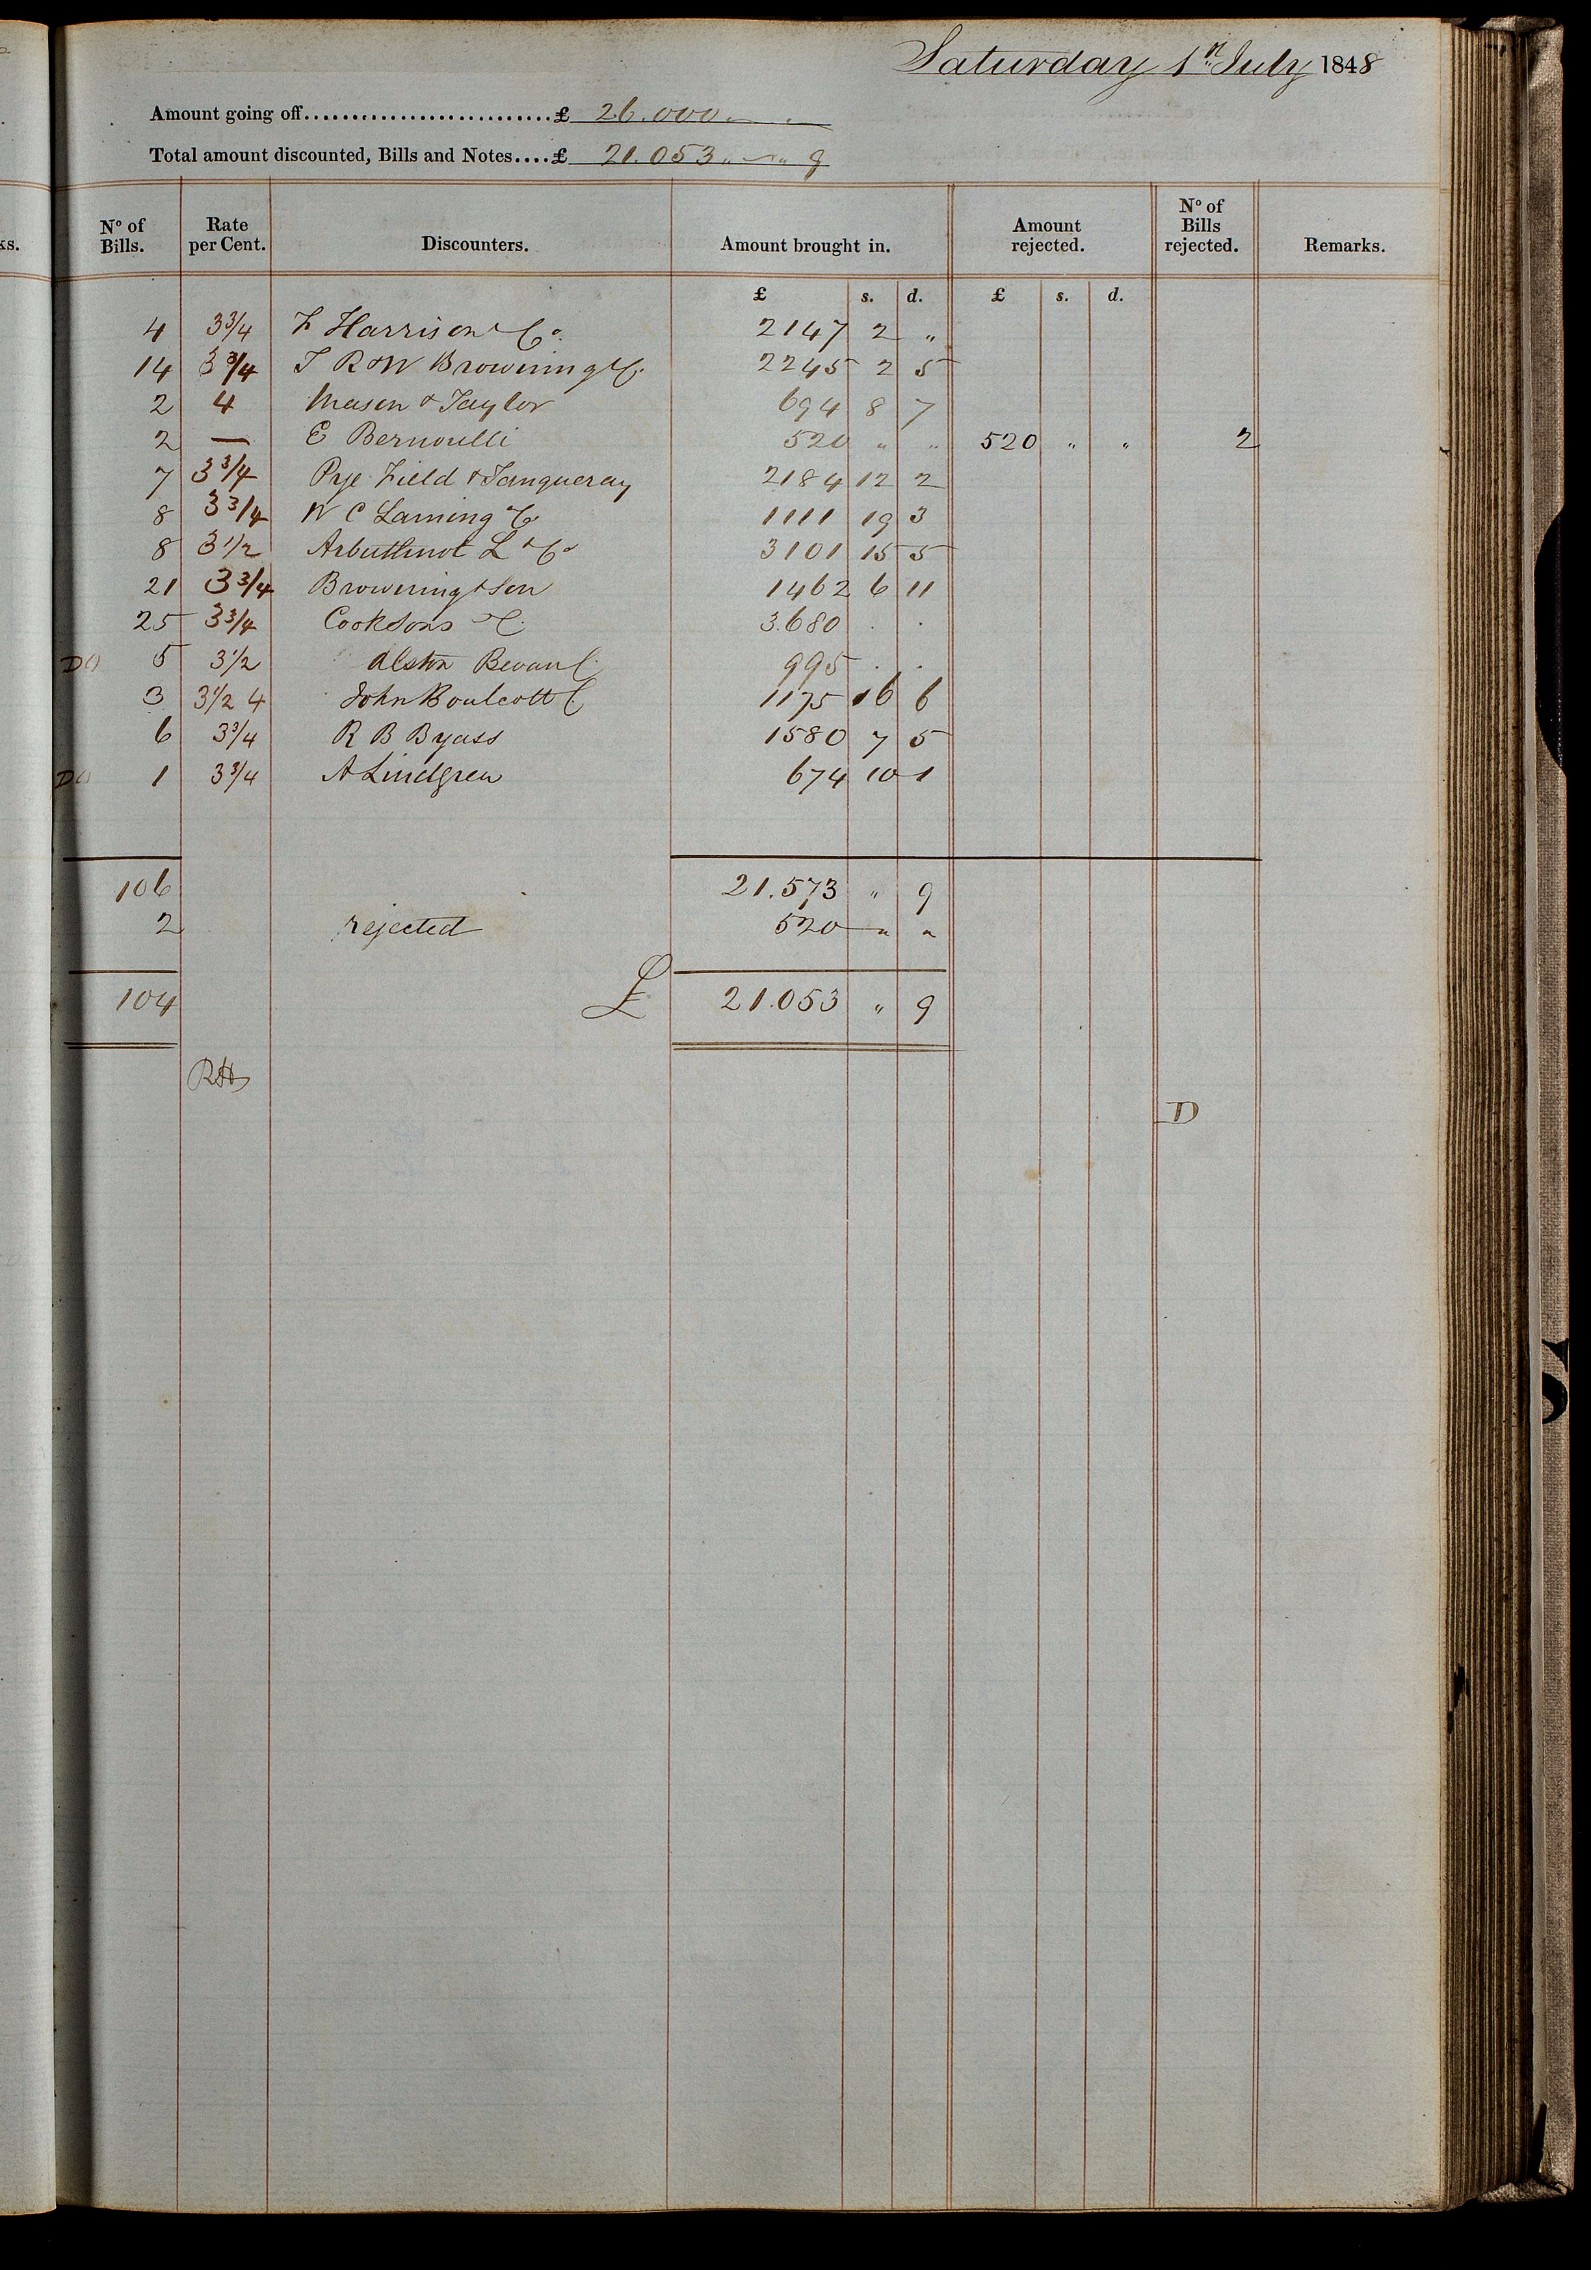 Saturday 1st July 1848
Amount going off...........................£ 26.000 " "
Total amount discounted, Bills and Notes....£ 21.053 " " 9
ks.
No of Bills. Rate per Cent. Discounters. Amount brought in. Amount rejected. No of Bills rejected. Remarks.
£ s. d. £ s. d.
4 3 3/4 F Harrison & Co. 2147 2 "
14 3 3/4 T R & W Browning & C. 2245 2 5
2 4 Mason & Taylor 694 8 7
2 — E Bernoulli 520 " " 520 " " 2
7 3 3/4 Pye Field & Tanqueray 2184 12 2
8 3 3/4 W C Laming & C. 1111 19 3
8 3 1/2 Arbuthnot L & Co 3101 15 5
21 3 3/4 Browning & Son 1462 6 11
25 3 3/4 Cooksons & C. 3.680 . .
DO 5 3 1/2 Alston Bevan C. 995 . .
3 3 1/2 4 John Boulcott C 1175 16 6
6 3 3/4 R B Byass 1580 7 5
DO 1 3 3/4 A Lindgren 674 10 1
106 21.573 " 9
2 rejected 520 " "
104 £ 21.053 " 9
RH
D